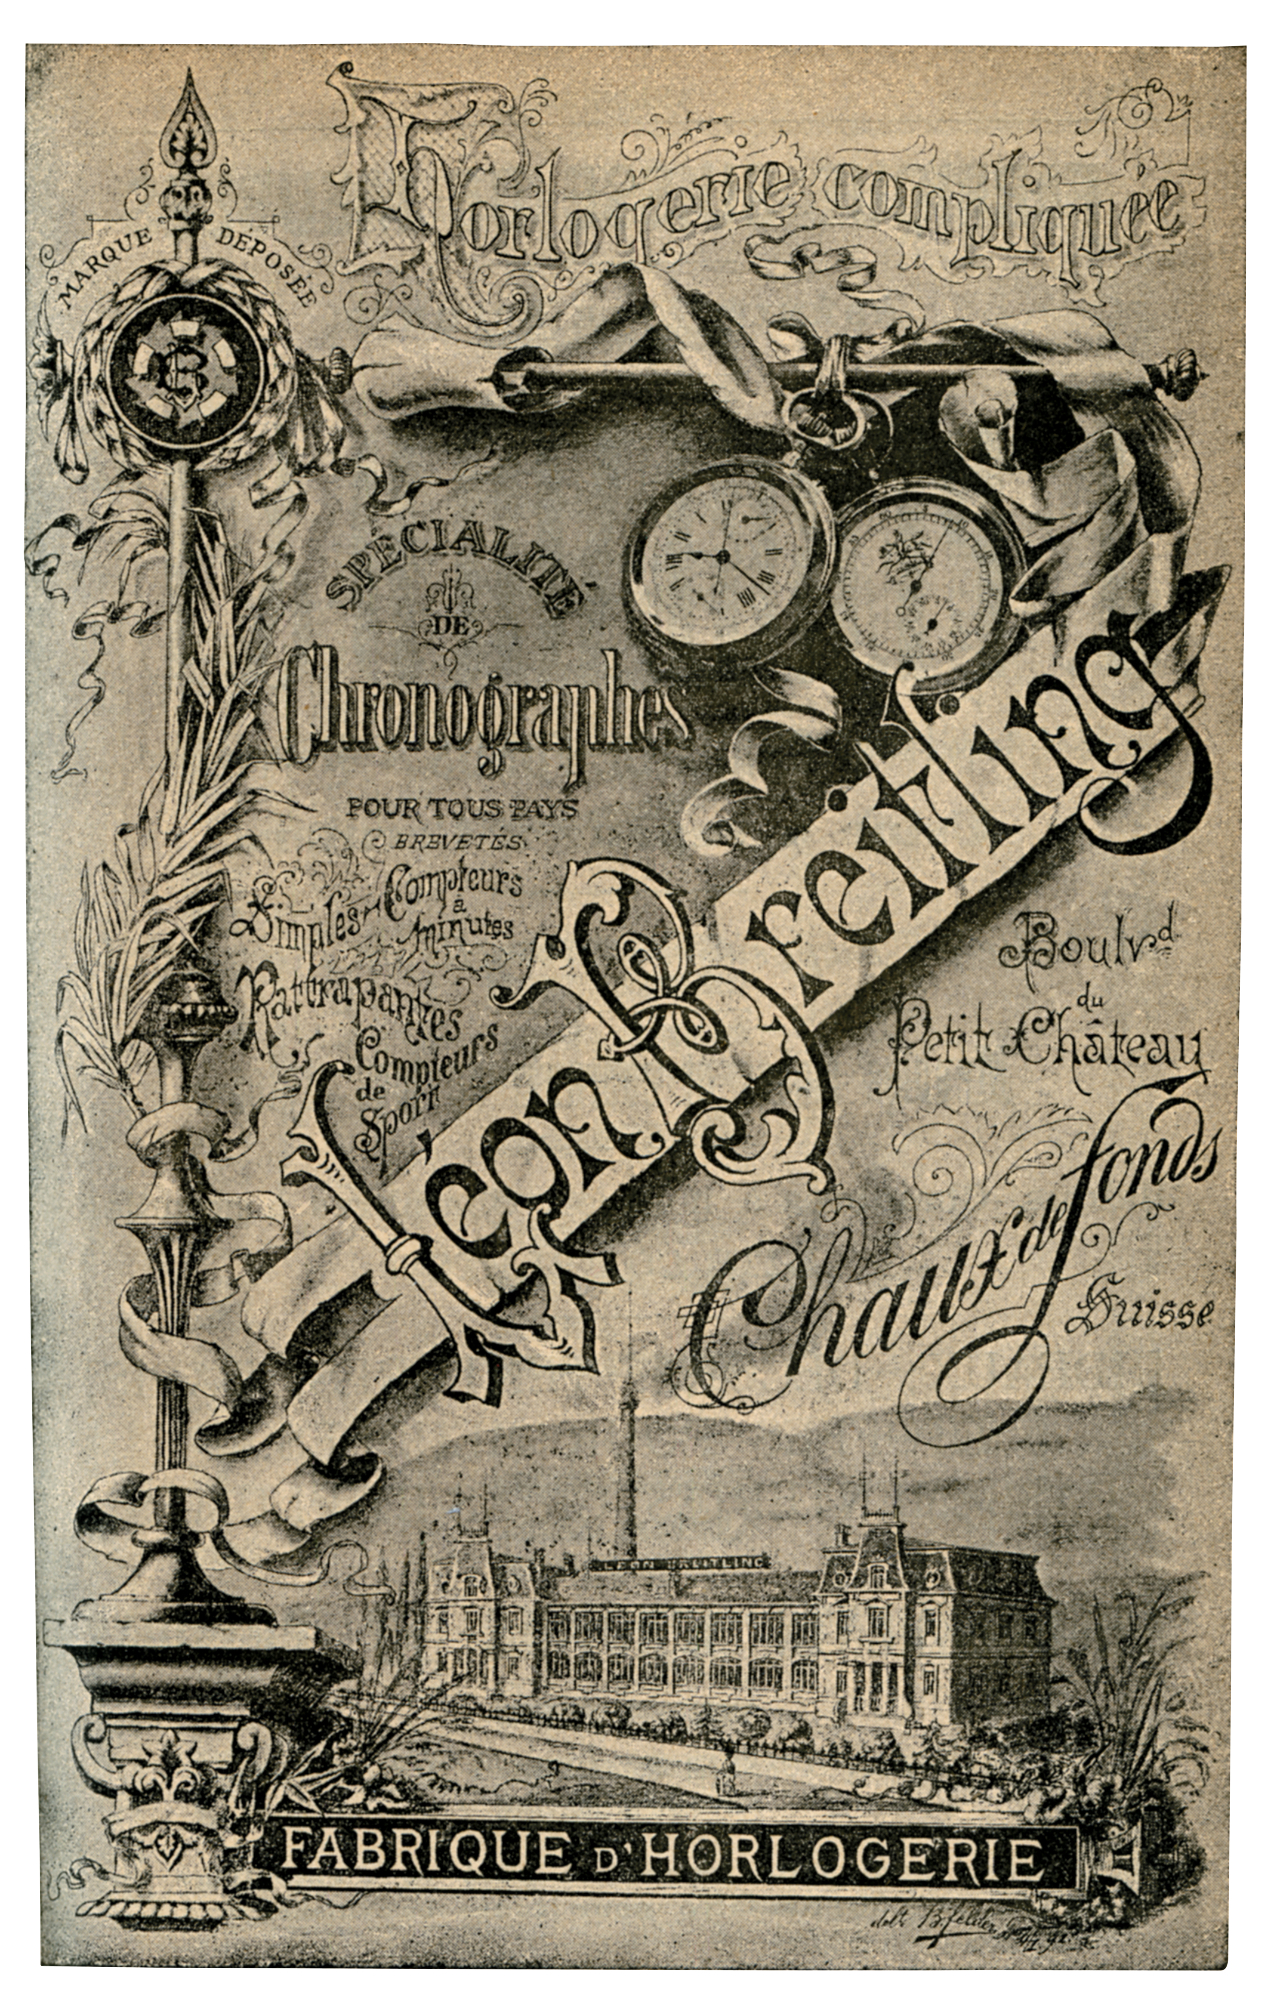 Horlogerie compliquée
MARQUE DÉPOSÉE
SPÉCIALITÉ
DE
Chronographes
POUR TOUS PAYS
BREVETÉS
Simples-Compteurs
à
minutes
Rattrapantes
Compteurs
de
Sport
Léon Breitling
Boulvd
du
Petit Château
Chaux de fonds
Suisse
LEON BREITLING
FABRIQUE D'HORLOGERIE